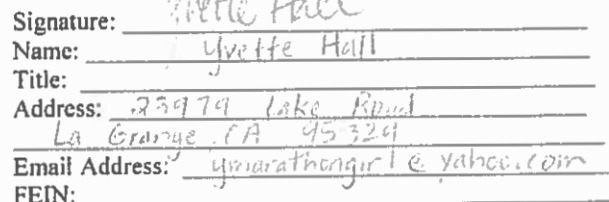 Signature: Yvette Hall
Name: Yvette Hall
Title:
Address: 23979 Lake Road
La Grange, CA 95329
Email Address: ymarathongirl@yahoo.com
FEIN: